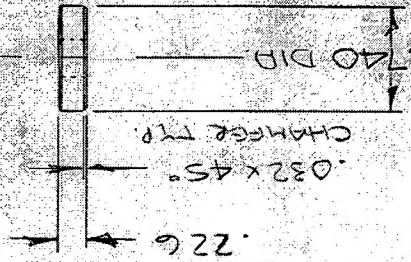 .226
.032 x 45°
CHAMFER TYP.
740 DIA.